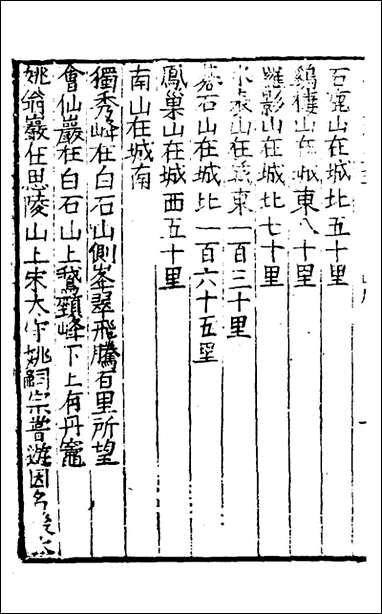 石鹿山在城北五十里
鷄棲山在城東八十里
羅影山在城北七十里
山在城東一百三十里
石山在城北一百六十五里
鳳巢山在城西五十里
南山在城南
獨秀峰在白石山側峯翠飛騰百里所望
會仙巖在白石山上鵝頸峰下上有丹竈
姚翁巖在思陵山上宋太守姚嗣宗普遊因名